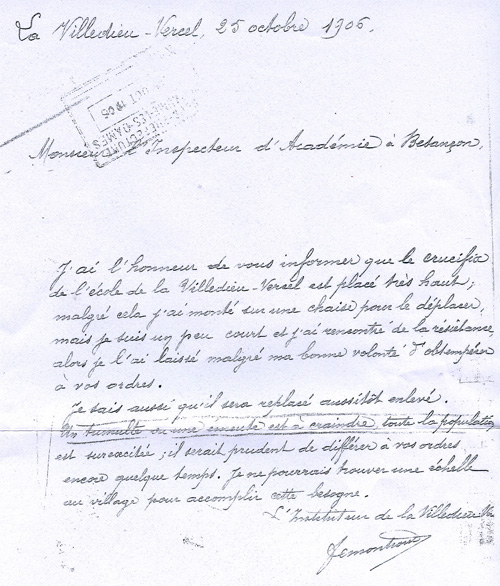 La Villedieu-Vercel, 25 octobre 1906.
OCT 1906
Monsieur l'Inspecteur d'Académie à Besançon,
J'ai l'honneur de vous informer que le crucifix
de l'école de la Villedieu-Vercel est placé très haut;
malgré cela j'ai monté sur une chaise pour le déplacer,
mais je suis un peu court et j'ai rencontré de la résistance,
alors je l'ai laissé malgré ma bonne volonté d'obtempérer
à vos ordres.
Je sais aussi qu'il sera replacé aussitôt enlevé.
Un tumulte ou une émeute est à craindre, toute la population
est surexcitée; il serait prudent de différer à vos ordres
encore quelque temps. Je ne pourrais trouver une échelle
au village pour accomplir cette besogne.
L'Instituteur de la Villedieu-Ve